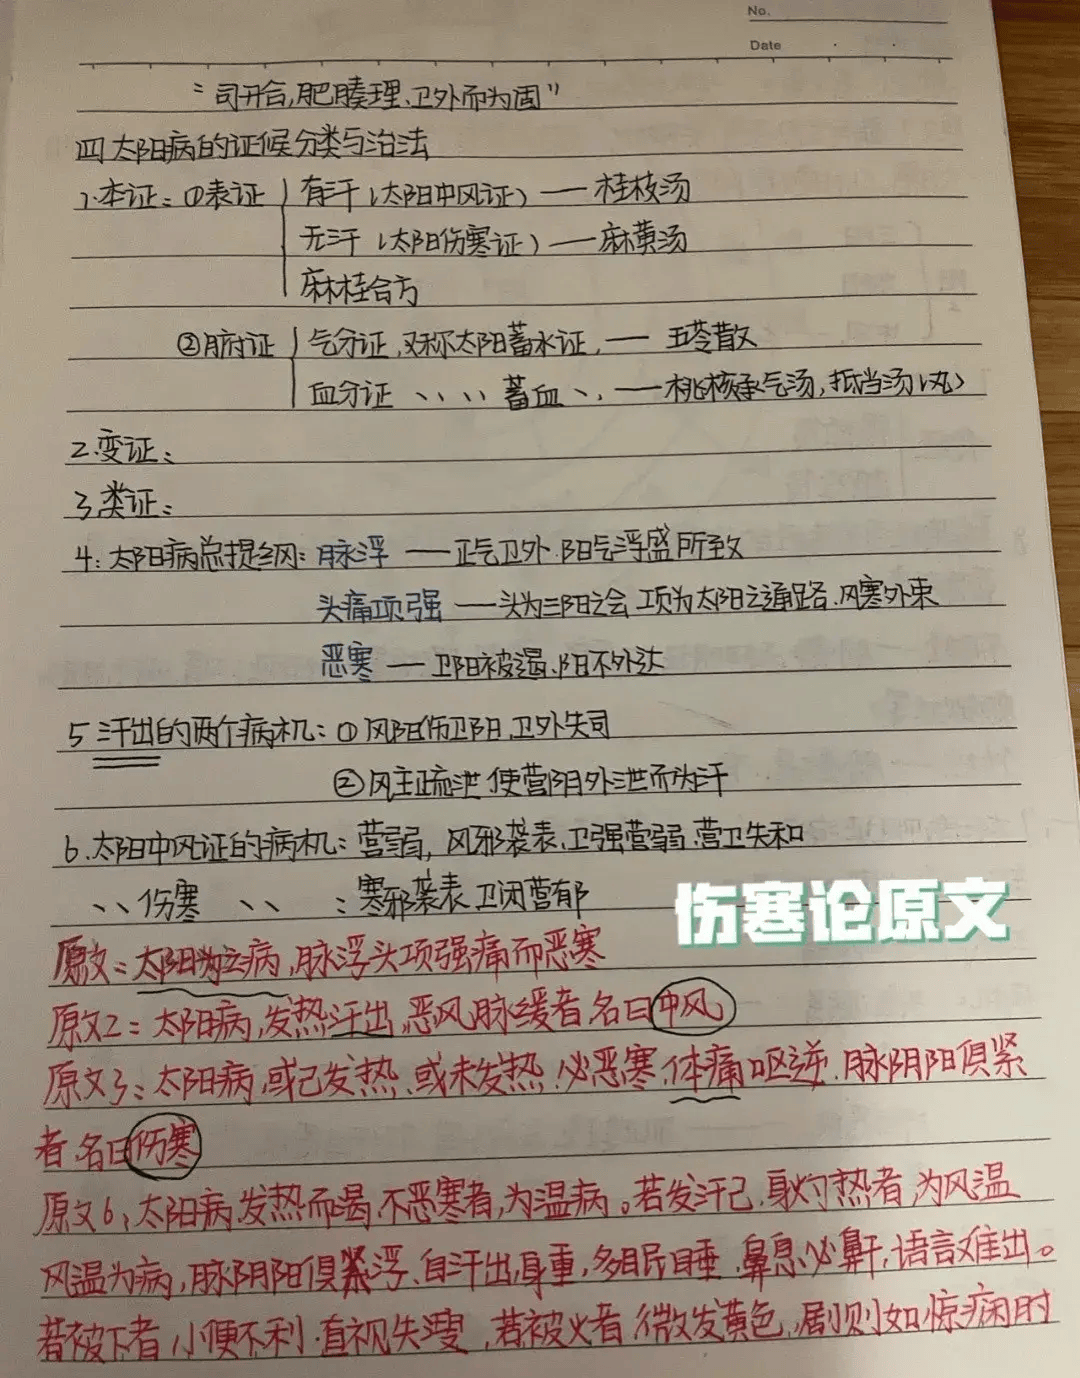 No.
Date
"司开合,肥腠理、卫外而为固"
四 太阳病的证候分类与治法
1.本证: ①表证 有汗(太阳中风证) — 桂枝汤
无汗(太阳伤寒证) — 麻黄汤
麻桂合方
②腑证 气分证,又称太阳蓄水证, — 五苓散
血分证 、、、、 蓄血 、, — 桃核承气汤,抵挡汤(丸)
2.变证:
3.类证:
4:太阳病总提纲: 脉浮 — 正气卫外.阳气浮盛所致
头痛项强 — 头为三阳之会 项为太阳之通路.风寒外束
恶寒 — 卫阳被遏.阳不外达
5 汗出的两个病机: ① 风阳伤卫阳,卫外失司
②风主疏泄 使营阴外泄而为汗
6.太阳中风证的病机: 营弱, 风邪袭表.卫强营弱.营卫失和
、、伤寒 、、 : 寒邪袭表 卫闭营郁
伤寒论原文
原文: 太阳为之病,脉浮头项强痛而恶寒
原文2: 太阳病,发热汗出,恶风,脉缓者,名曰中风
原文3: 太阳病,或已发热,或未发热,必恶寒,体痛呕逆.脉阴阳俱紧
者,名曰伤寒
原文6, 太阳病.发热而渴,不恶寒者,为温病。若发汗已,身灼热者,为风温
风温为病,脉阴阳俱浮.自汗出,身重,多眠睡.鼻息必鼾,语言难出。
若被下者,小便不利.直视失溲,若被火者,微发黄色,剧则如惊痫时